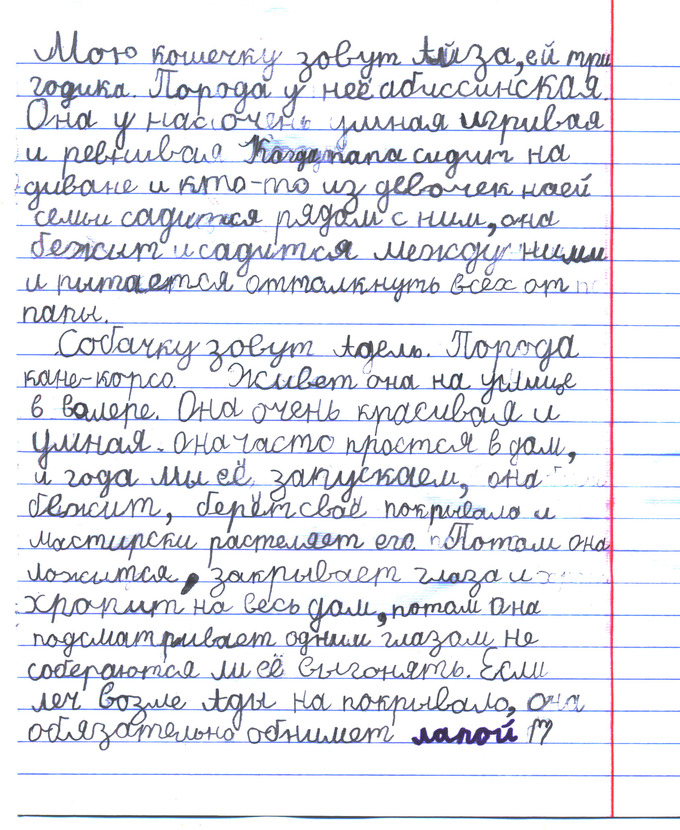 Мою кошечку зовут Айза, ей три
годика. Порода у неё абиссинская.
Она у нас очень умная игривая
и ревнивая Когда папа сидит на
диване и кто-то из девочек наей
семьи садится рядом с ним, она
бежит и садится между ними
и рытается оттолкнуть всех от
папы.
Собачку зовут Адель. Порода
кане-корсо. Живет она на улице
в валере. Она очень красивая и
умная. она часто простся в дом,
и года мы её запускаем, она
бежит, берёт своё покрывало и
мастирски растеляет его. Потом она
ложится, закрывает глаза и
храпит на весь дом, потом она
подсматривает одним глазом не
собераются ли её выгонять. Если
леч возме Ады на покрывало, она
обязательно обнимет лапой